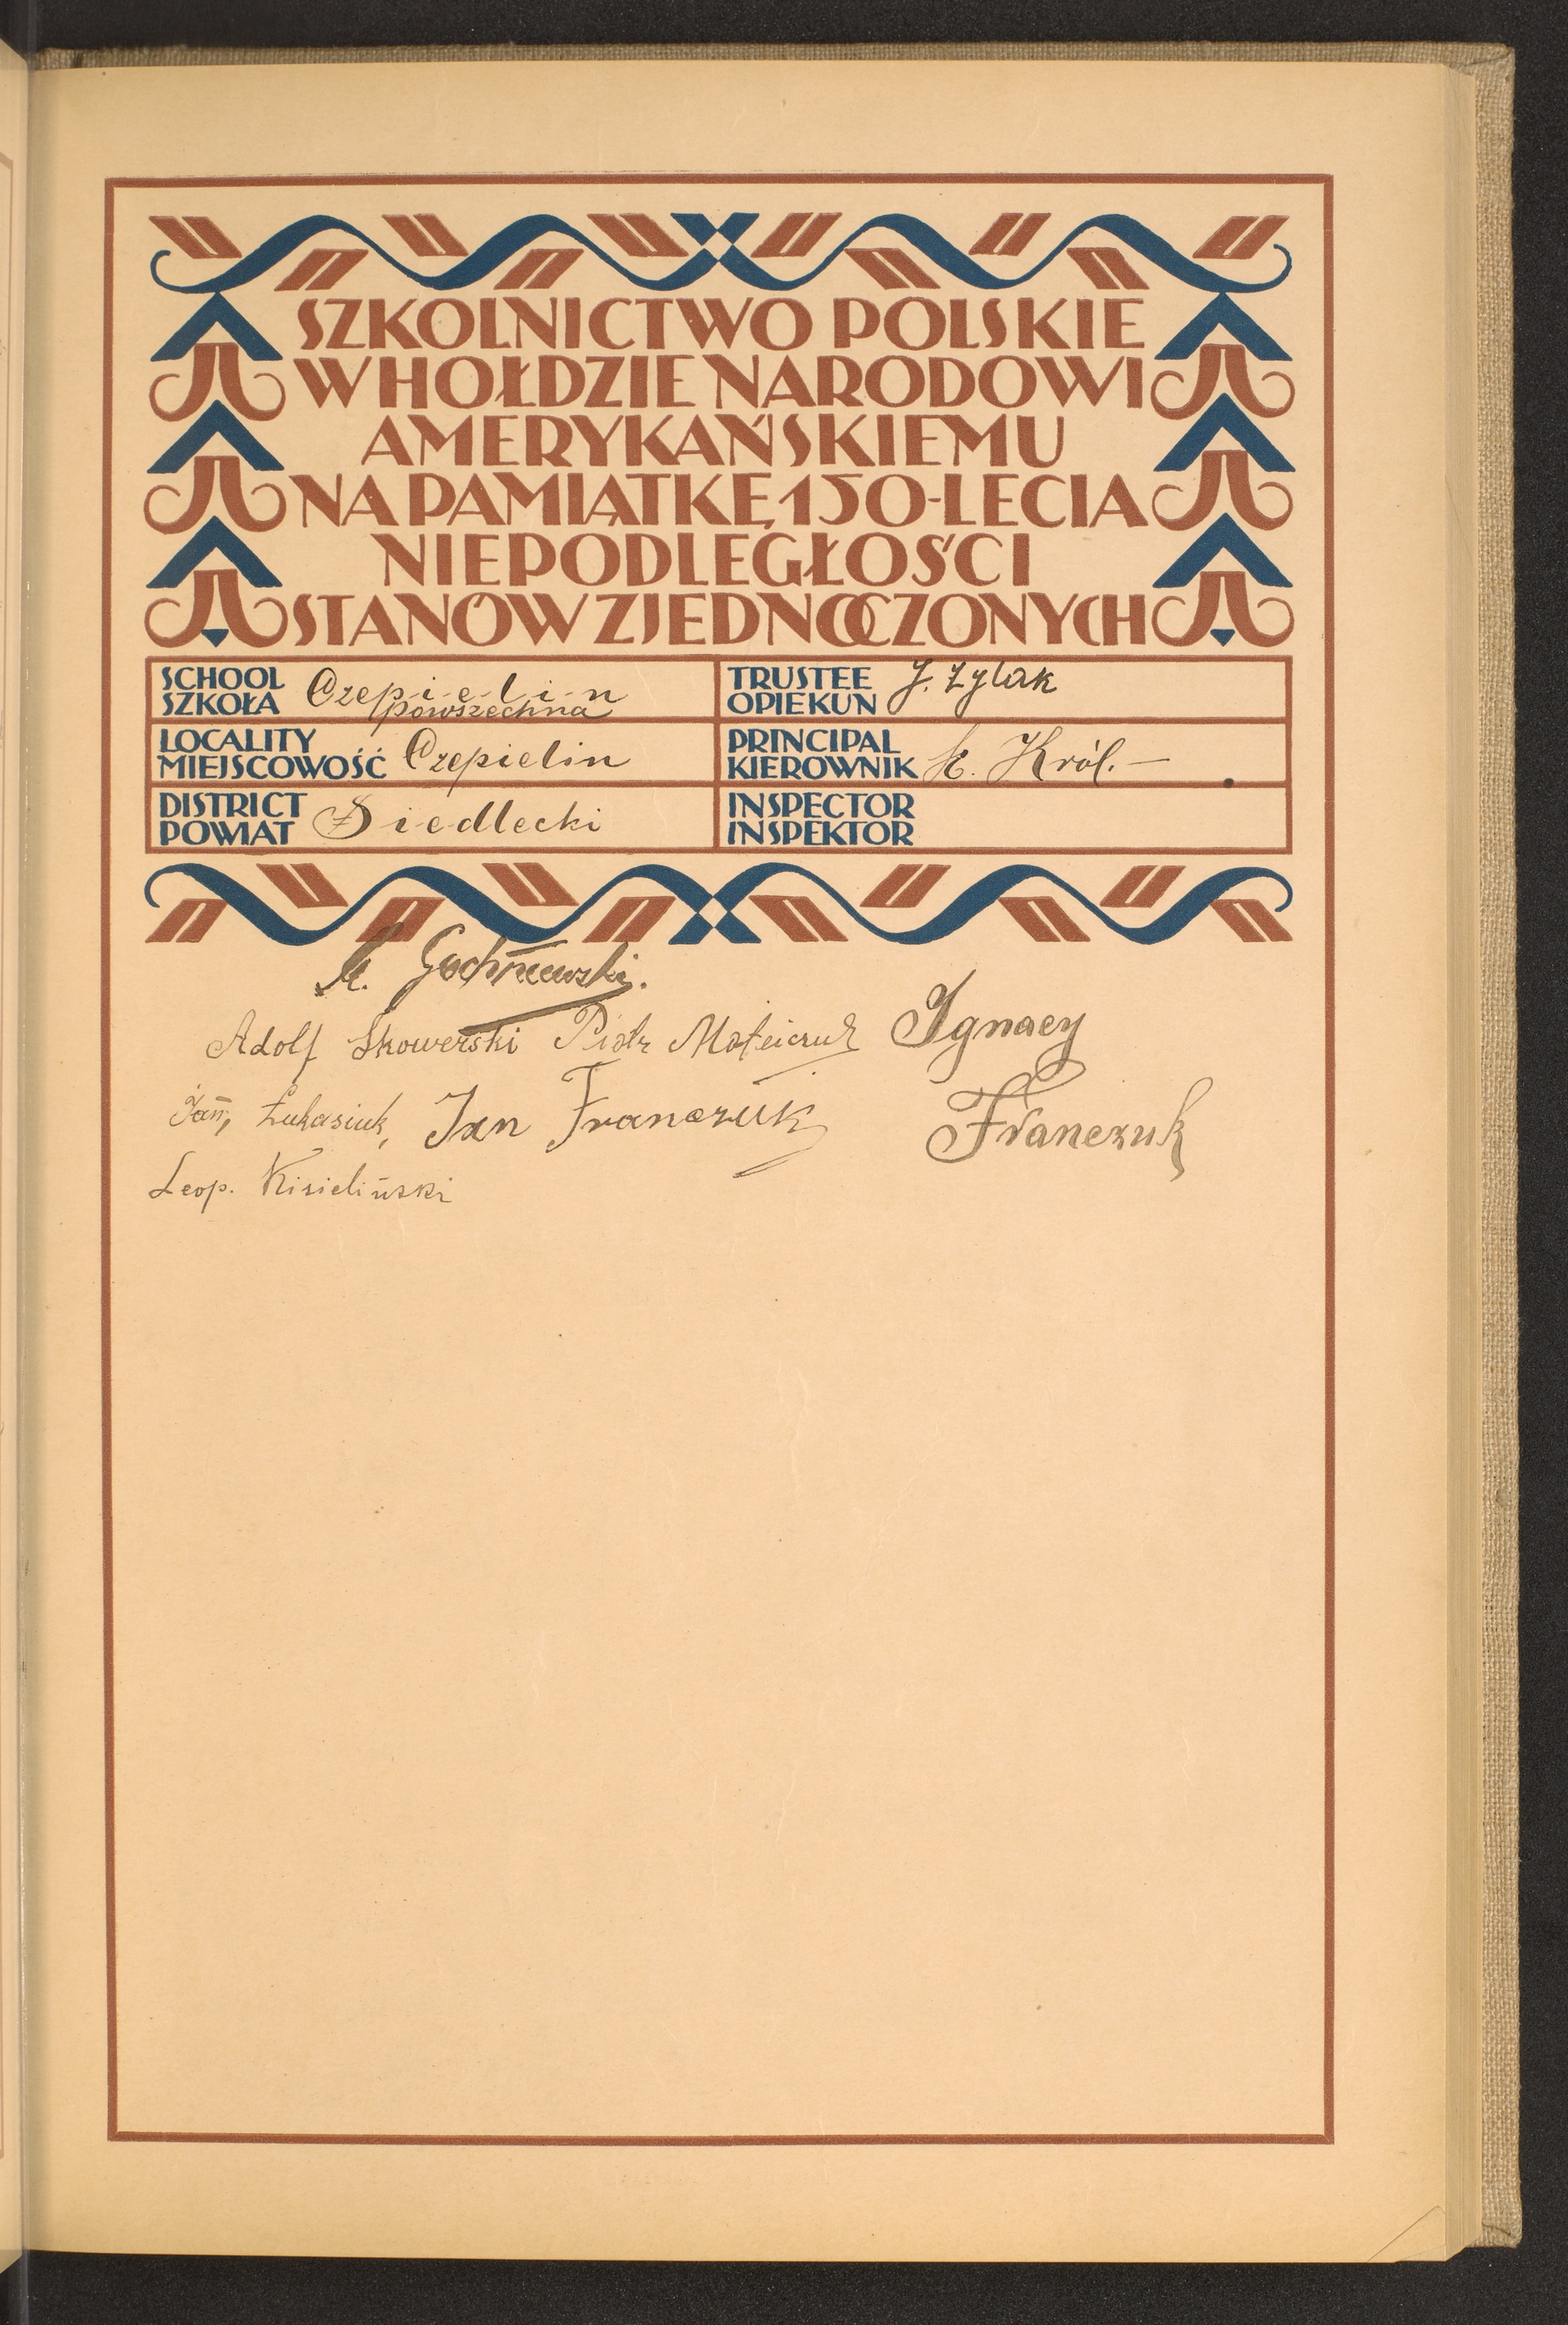 SZKOLNICTWO POLSKIE
W HOŁDZIE NARODOWI
AMERYKAŃSKIEMU
NA PAMIĄTKĘ 150-LECIA
NIEPODLEGŁOŚCI
STANÓW ZJEDNOCZONYCH
SCHOOL
SZKOŁA
Czepielin
powszechna
TRUSTEE
OPIEKUN
J. Zylak
LOCALITY
MIEJSCOWOŚĆ
Czepielin
PRINCIPAL
KIEROWNIK
Król.—
DISTRICT
POWIAT
Siedlecki
INSPECTOR
INSPEKTOR
Adolf Skowerski Piotr Mateiczuk Ignacy
Jan, Łukasiuk, Jan Franczuk Franczuk
Leop. Kisieliński